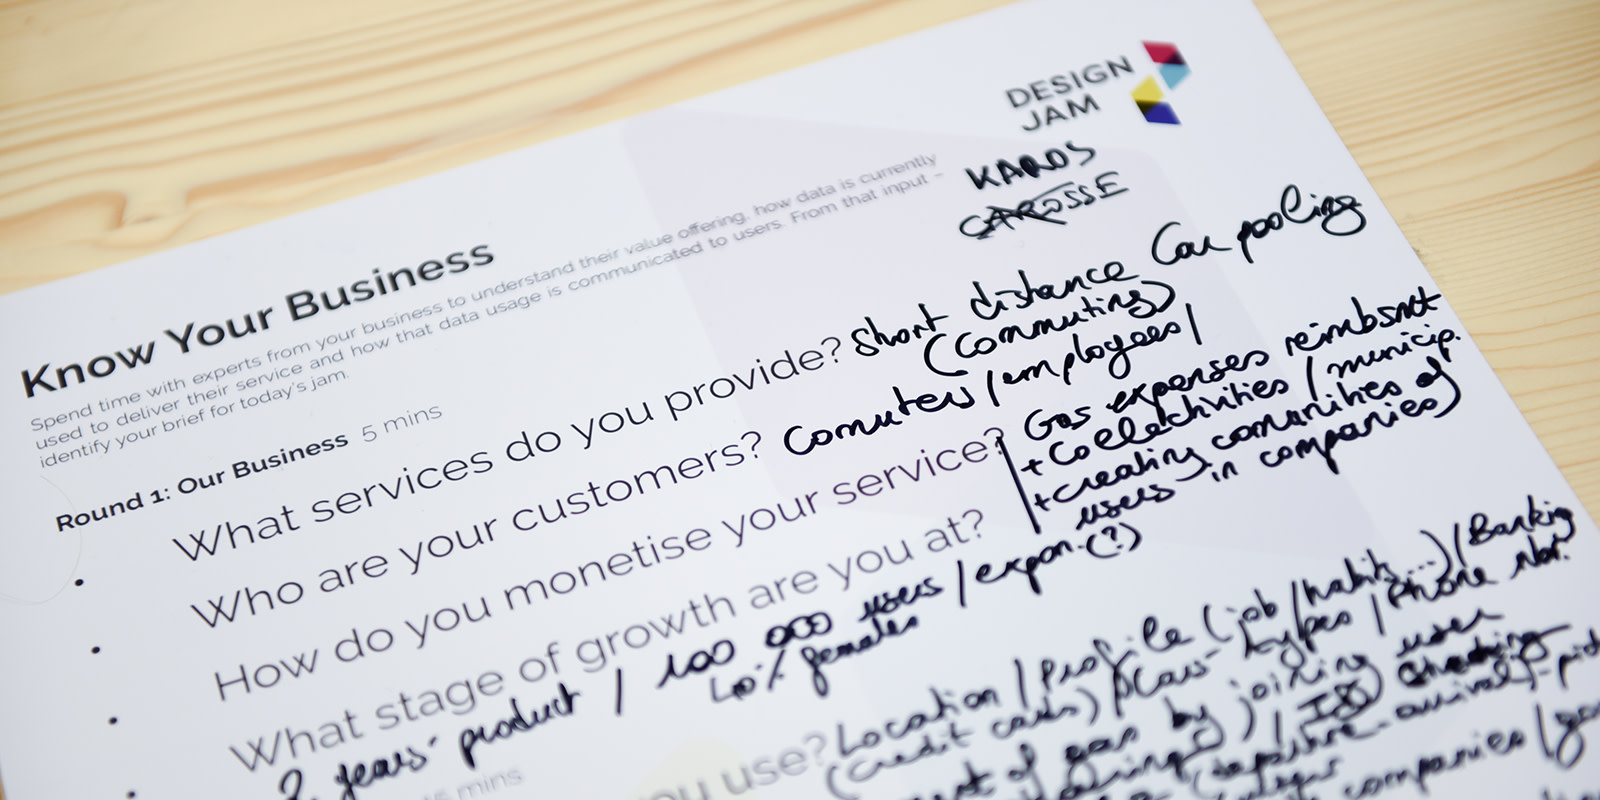 DESIGN
JAM
KAROS
CAROSSE
Know Your Business
Spend time with experts from your business to understand their value offering, how data is currently
used to deliver their service and how that data usage is communicated to users. From that input –
identify your brief for today's jam.
Round 1: Our Business 5 mins
• What services do you provide? Short distance Car pooling
(Commuting)
• Who are your customers? Comuters / employees /
• How do you monetise your service? Gas expenses reimbsmt
+ Coelectivities / municip.
+ creating comunities of
users in companies)
• What stage of growth are you at?
2 years' product / 100 000 users / expan. (?)
40% females
you use? Location / Profile (job / habits ...) / Banking
(credit cards) / Cars types / Phone Nbr.
of gas by joining user
mins
companies /